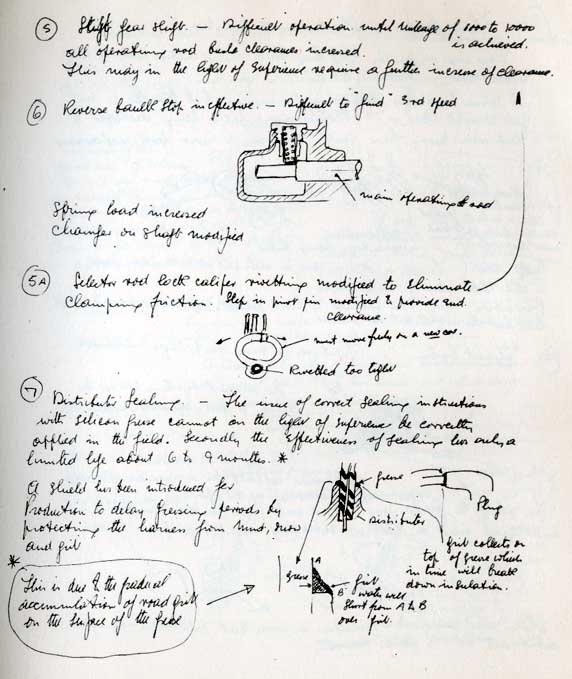 5 Stiff gear shift. – Difficult operation until mileage of 5000 to 10000
is achieved.
all operating rod bush clearances increased.
This may in the light of experience require a further increase of clearance.
6 Reverse baulk stop ineffective. – Difficult to "find" 3rd speed
main operating rod
Spring load increased
Chamfer on shaft modified
5A Selector rod lock caliper rivetting modified to Eliminate
clamping friction. Step in pivot pin modified to provide end
clearance.
must move freely on a new car.
Rivetted too tight
7 Distributor Sealing. – The issue of correct sealing instructions
with silicon grease cannot in the light of experience be correctly
applied in the field. Secondly the effectiveness of sealing has only a
limited life about 6 to 9 months. *
A shield has been introduced for
Production to delay greasing periods by
protecting the harness from mud, snow
and grit
grease
Plug
Distributor
Grit collects on
top of grease which
in time will break
down insulation.
* This is due to the gradual
accumulation of road grit
on the surface of the grease
Grease
A
B
grit
water will
short from A to B
over grit.